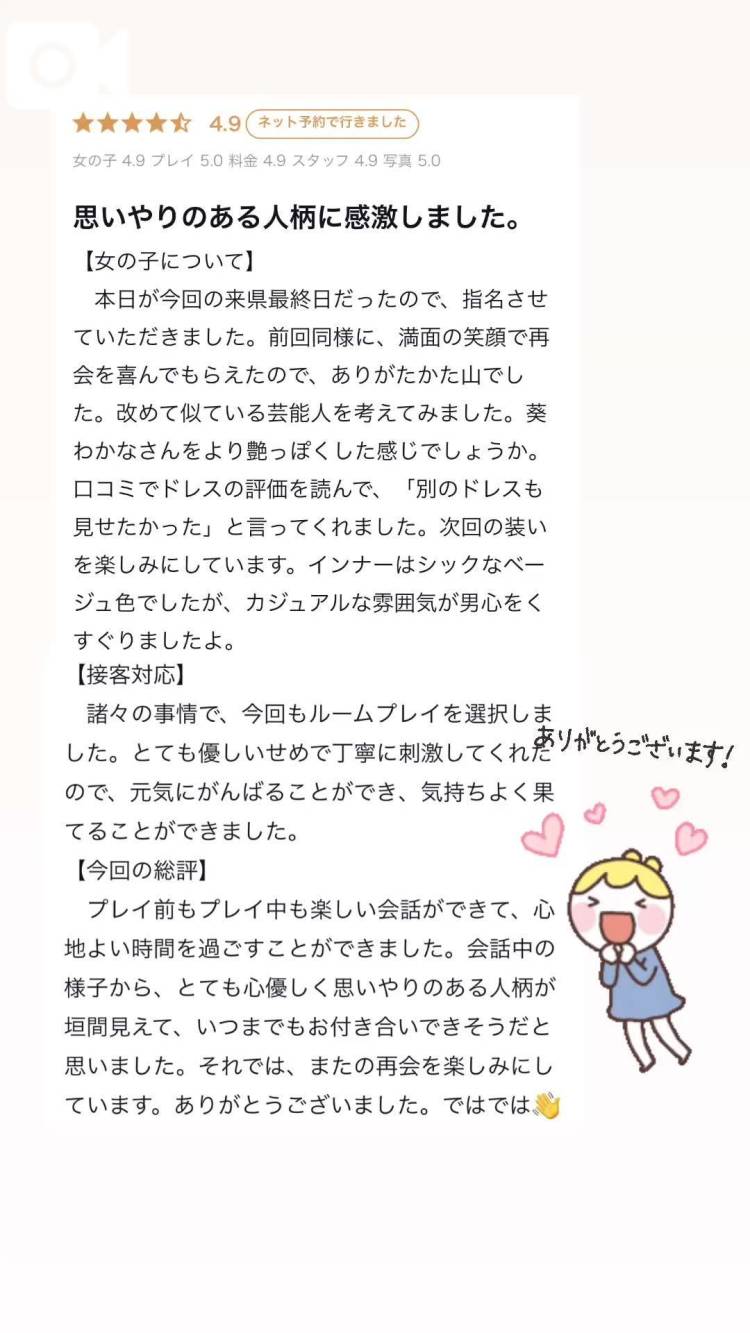 4.9 ネット予約で行きました
女の子 4.9 プレイ 5.0 料金 4.9 スタッフ 4.9 写真 5.0
思いやりのある人柄に感激しました。
【女の子について】
　本日が今回の来県最終日だったので、指名させ
ていただきました。前回同様に、満面の笑顔で再
会を喜んでもらえたので、ありがたかた山でし
た。改めて似ている芸能人を考えてみました。葵
わかなさんをより艶っぽくした感じでしょうか。
口コミでドレスの評価を読んで、「別のドレスも
見せたかった」と言ってくれました。次回の装い
を楽しみにしています。インナーはシックなベー
ジュ色でしたが、カジュアルな雰囲気が男心をく
すぐりましたよ。
【接客対応】
　諸々の事情で、今回もルームプレイを選択しま
した。とても優しいせめで丁寧に刺激してくれた
ので、元気にがんばることができ、気持ちよく果
てることができました。
ありがとうございます!
【今回の総評】
　プレイ前もプレイ中も楽しい会話ができて、心
地よい時間を過ごすことができました。会話中の
様子から、とても心優しく思いやりのある人柄が
垣間見えて、いつまでもお付き合いできそうだと
思いました。それでは、またの再会を楽しみにし
ています。ありがとうございました。ではでは👋